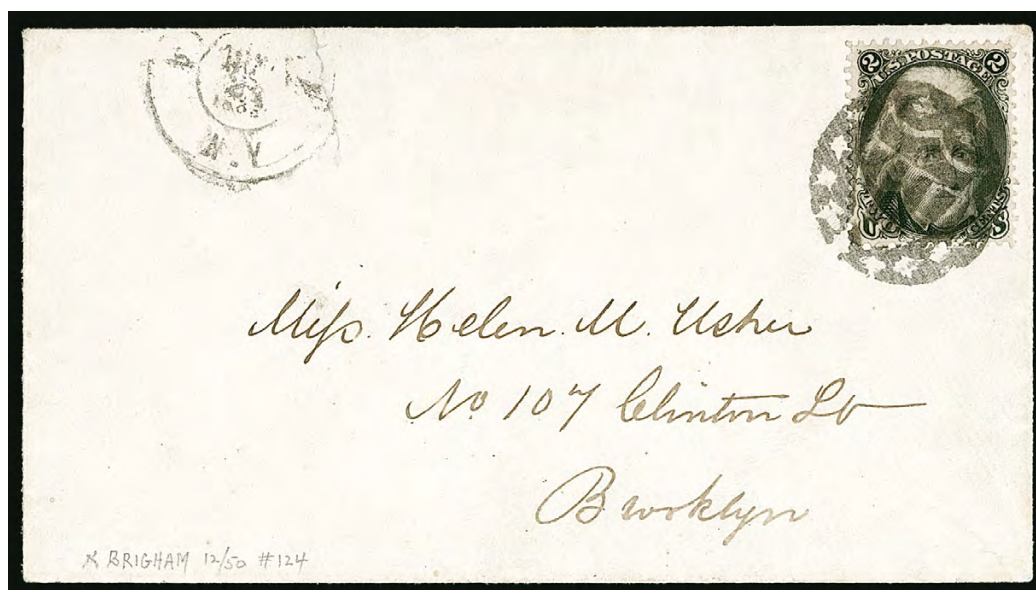 N.Y.
2 U.S. POSTAGE 2
CENTS
Miſs. Helen. M. Usher
No 107 Clinton St
Brooklyn
x BRIGHAM 12/50 #124